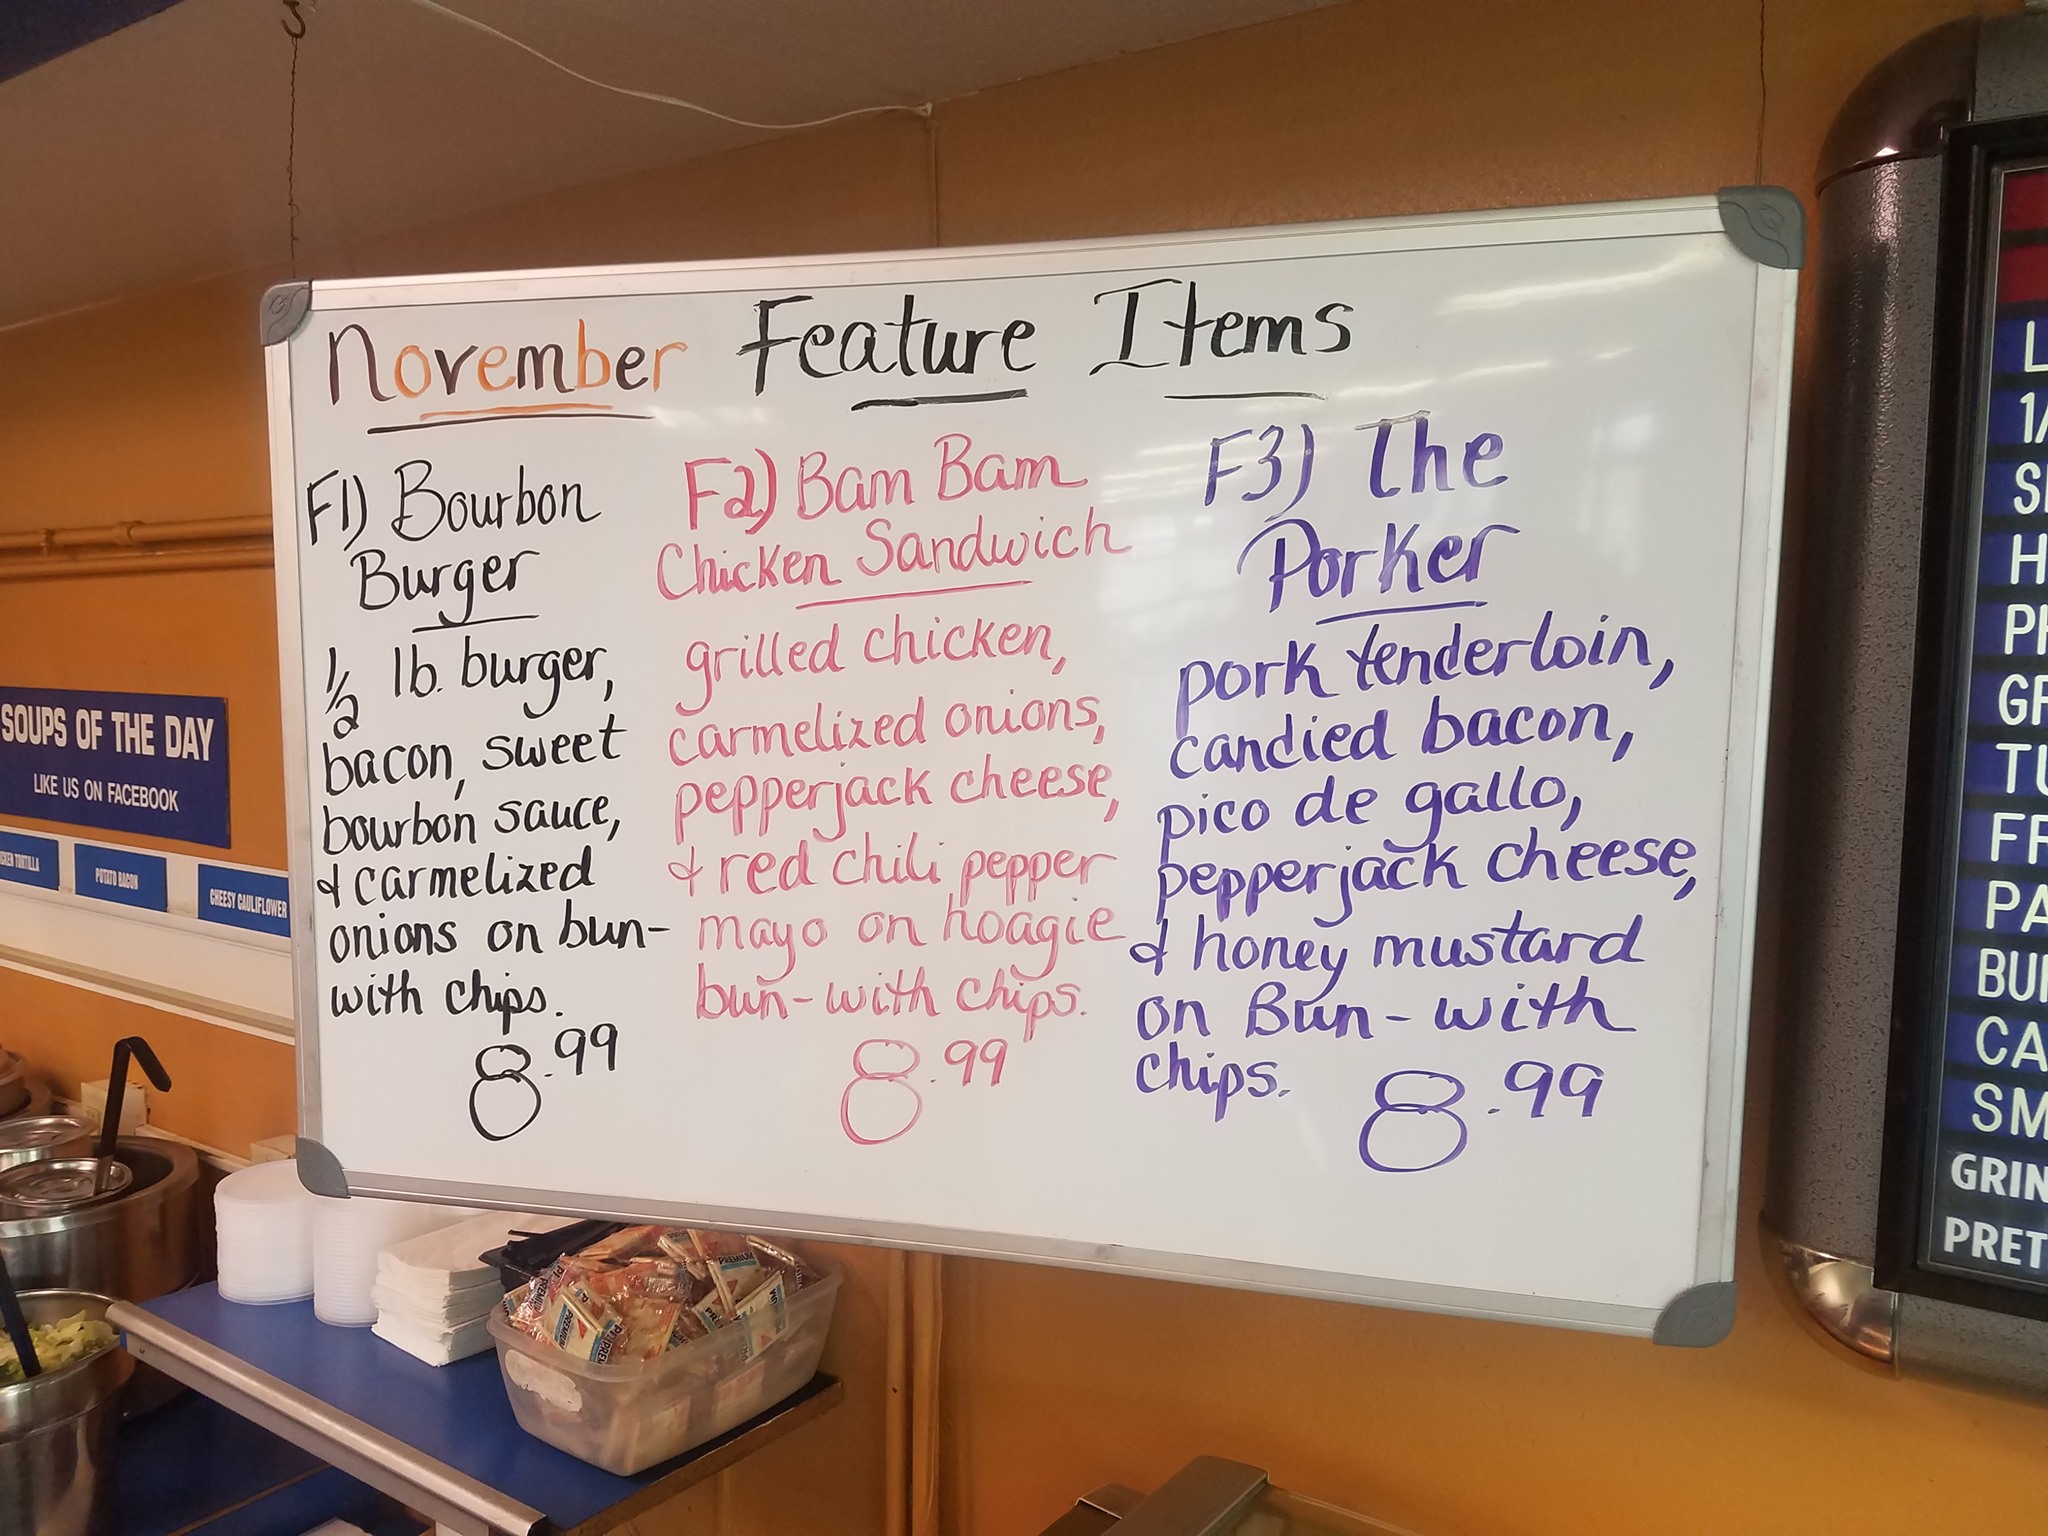 November Feature Items
F1) Bourbon
Burger
1/2 lb. burger,
bacon, sweet
bourbon sauce,
& carmelized
onions on bun-
with chips.
8.99
F2) Bam Bam
Chicken Sandwich
grilled chicken,
carmelized onions,
pepperjack cheese,
& red chili pepper
mayo on hoagie
bun-with chips.
8.99
F3) The
Porker
pork tenderloin,
candied bacon,
pico de gallo,
pepperjack cheese,
& honey mustard
on Bun-with
chips.
8.99
SOUPS OF THE DAY
LIKE US ON FACEBOOK
TORTILLA
POTATO BACON
CHEESY CAULIFLOWER
PREMIUM